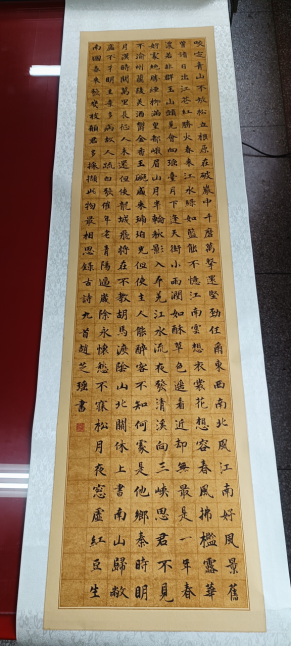 咬定青山不放松立根原在破巖中千磨萬擊還堅勁任爾東西南北風江南好風景舊
曾諳日出江花紅勝火春來江水緑如藍能不憶江南雲想衣裳花想容春風拂檻露華
濃若非群玉山頭見會向瑶臺月下逢天街小雨潤如酥草色遥看近却無最是一年春
好處絶勝煙柳滿皇都峨眉山月半輪秋影入平羌江水流夜發清溪向三峽思君不見
下渝州蘭陵美酒鬱金香玉碗盛來琥珀光但使主人能醉客不知何處是他鄉秦時明
月漢時關萬里長征人未還但使龍城飛將在不教胡馬渡陰山北闕休上書南山歸敝
廬不才明主棄多病故人疏白發催年老青陽逼歲除永懷愁不寐松月夜窓虚紅豆生
南國春來發幾枝願君多採擷此物最相思録古詩九首趙芝書